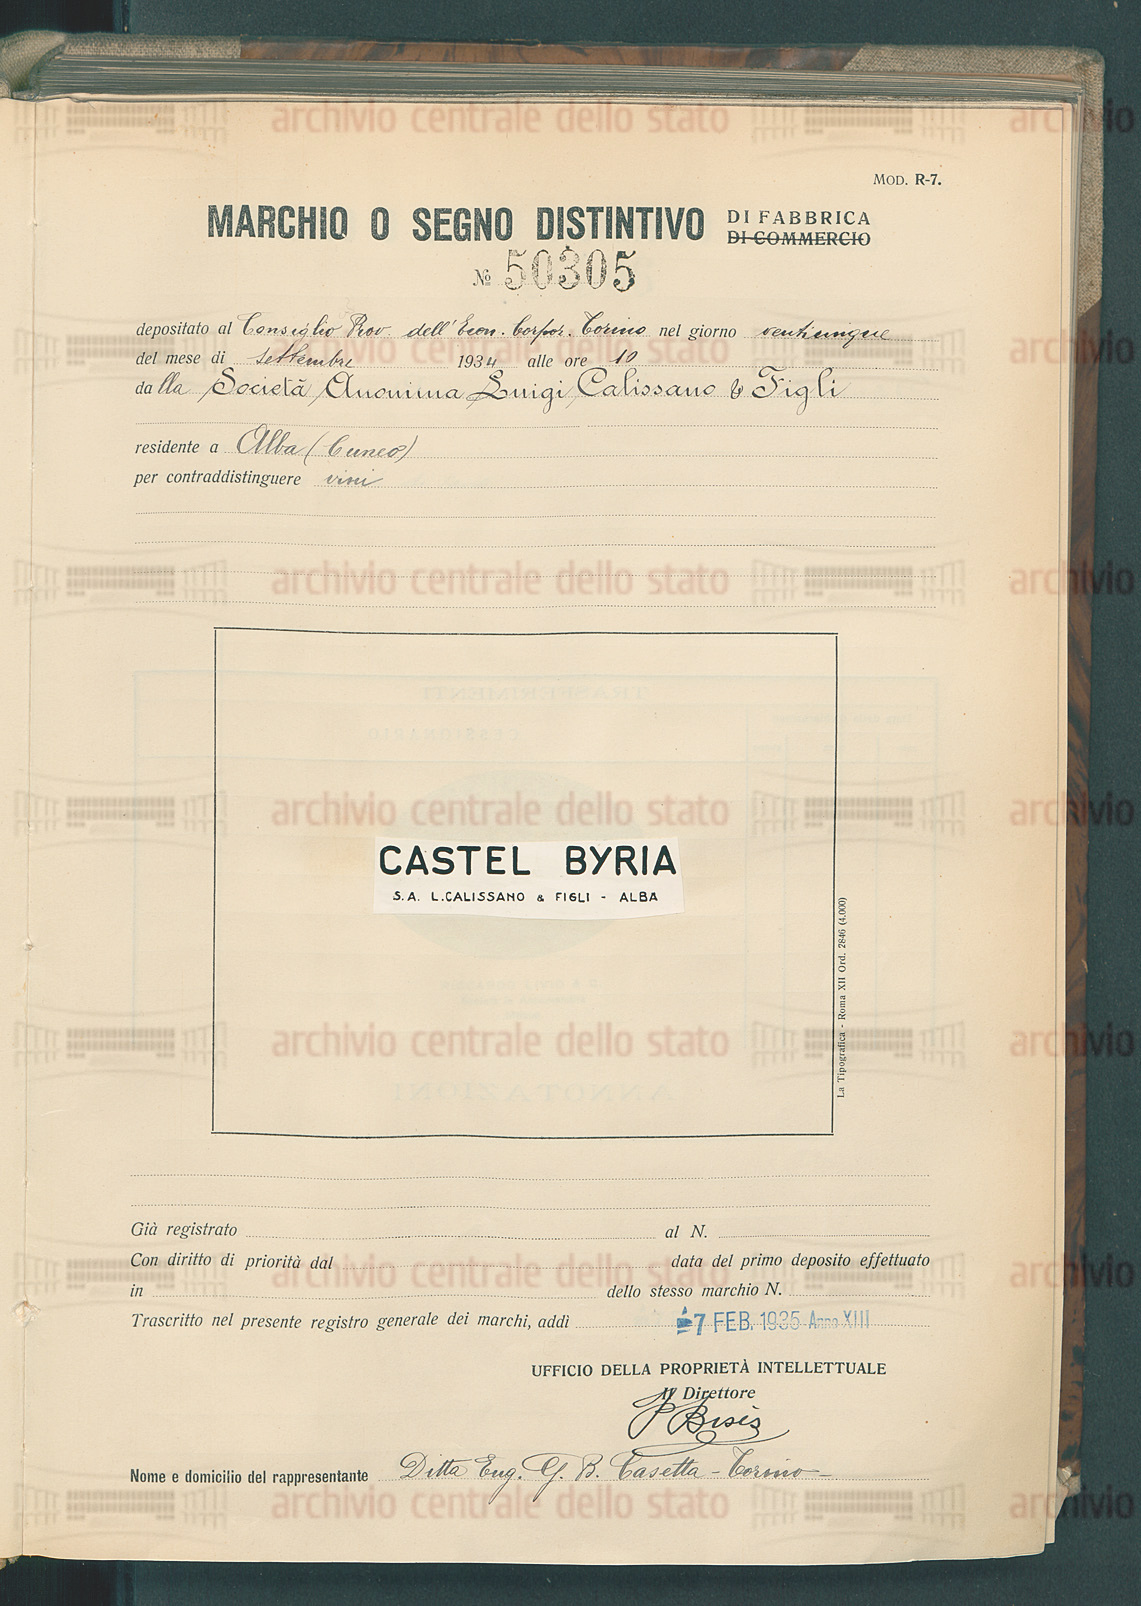 MOD. R-7.
MARCHIO O SEGNO DISTINTIVO DI FABBRICA
DI COMMERCIO
№ 50305
depositato al Consiglio Prov. dell'Econ. Corpor. Torino nel giorno venticinque
del mese di settembre 1934 alle ore 10
dalla Società Anonima Luigi Calissano & Figli
residente a Alba (Cuneo)
per contraddistinguere vini
CASTEL BYRIA
S.A. L.CALISSANO & FIGLI - ALBA
La Tipografica - Roma XII Ord. 2846 (4.000)
Già registrato al N.
Con diritto di priorità dal data del primo deposito effettuato
in dello stesso marchio N.
Trascritto nel presente registro generale dei marchi, addì 7 FEB. 1935 Anno XIII
UFFICIO DELLA PROPRIETÀ INTELLETTUALE
Il Direttore
Nome e domicilio del rappresentante Ditta Eng. G. B. Casetta - Torino -
archivio centrale dello stato